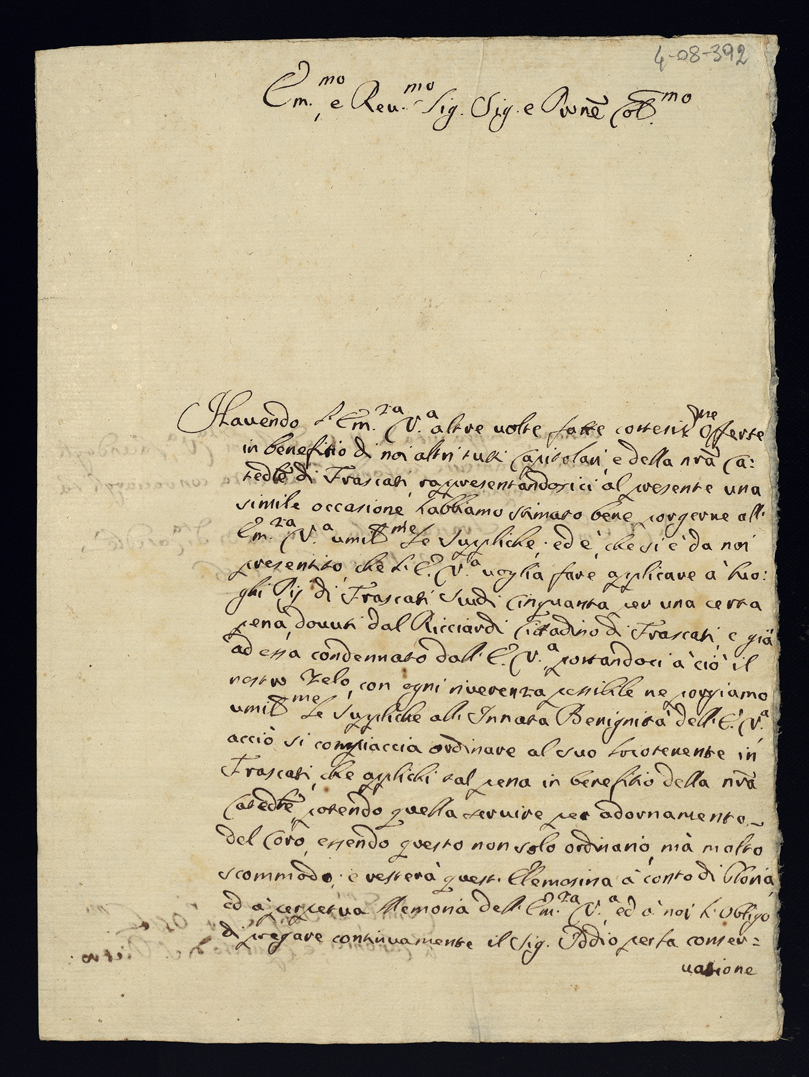 4-08-392
Em.mo e Reu.mo Sig. Sig. e Prone Col.mo
Havendo l'Em.za V.a altre uolte fatte cortesiss.me offerte
in benefitio di noi altri tutti Capitolari, e della nrã Ca:
tedle di Frascati, rappresentandosici al presente una
simile occasione habbiamo stimato bene porgerne all'
Em.za V.a umil.me le suppliche: ed è, che si è da noi
presentito che l'E. V.a uoglia fare applicare à luo:
ghi Pij di Frascati Scudi Cinquanta per una certa
pena, douuti dal Ricciardi Cittadino di Frascati, e già
ad essa condennato dall'E. V.a portandoci à ciò il
nostro Zelo, con ogni riuerenza possibile ne porgiamo
umil.me le suppliche all'Innata Benignità dell'E. V.a
acciò si compiaccia ordinare al suo locotenente in
Frascati, che applichi tal pena in benefitio della nrã
Catedle, potendo quella seruire per adornamento
del Coro, essendo questo non solo ordinario, mà molto
scommodo, e resterà quest'Elemosina à conto di Gloria,
ed à perpetua Memoria dell'Em.za V.a, ed à noi l'obligo
di pregare continuamente il Sig. Iddio per la conser=
uatione